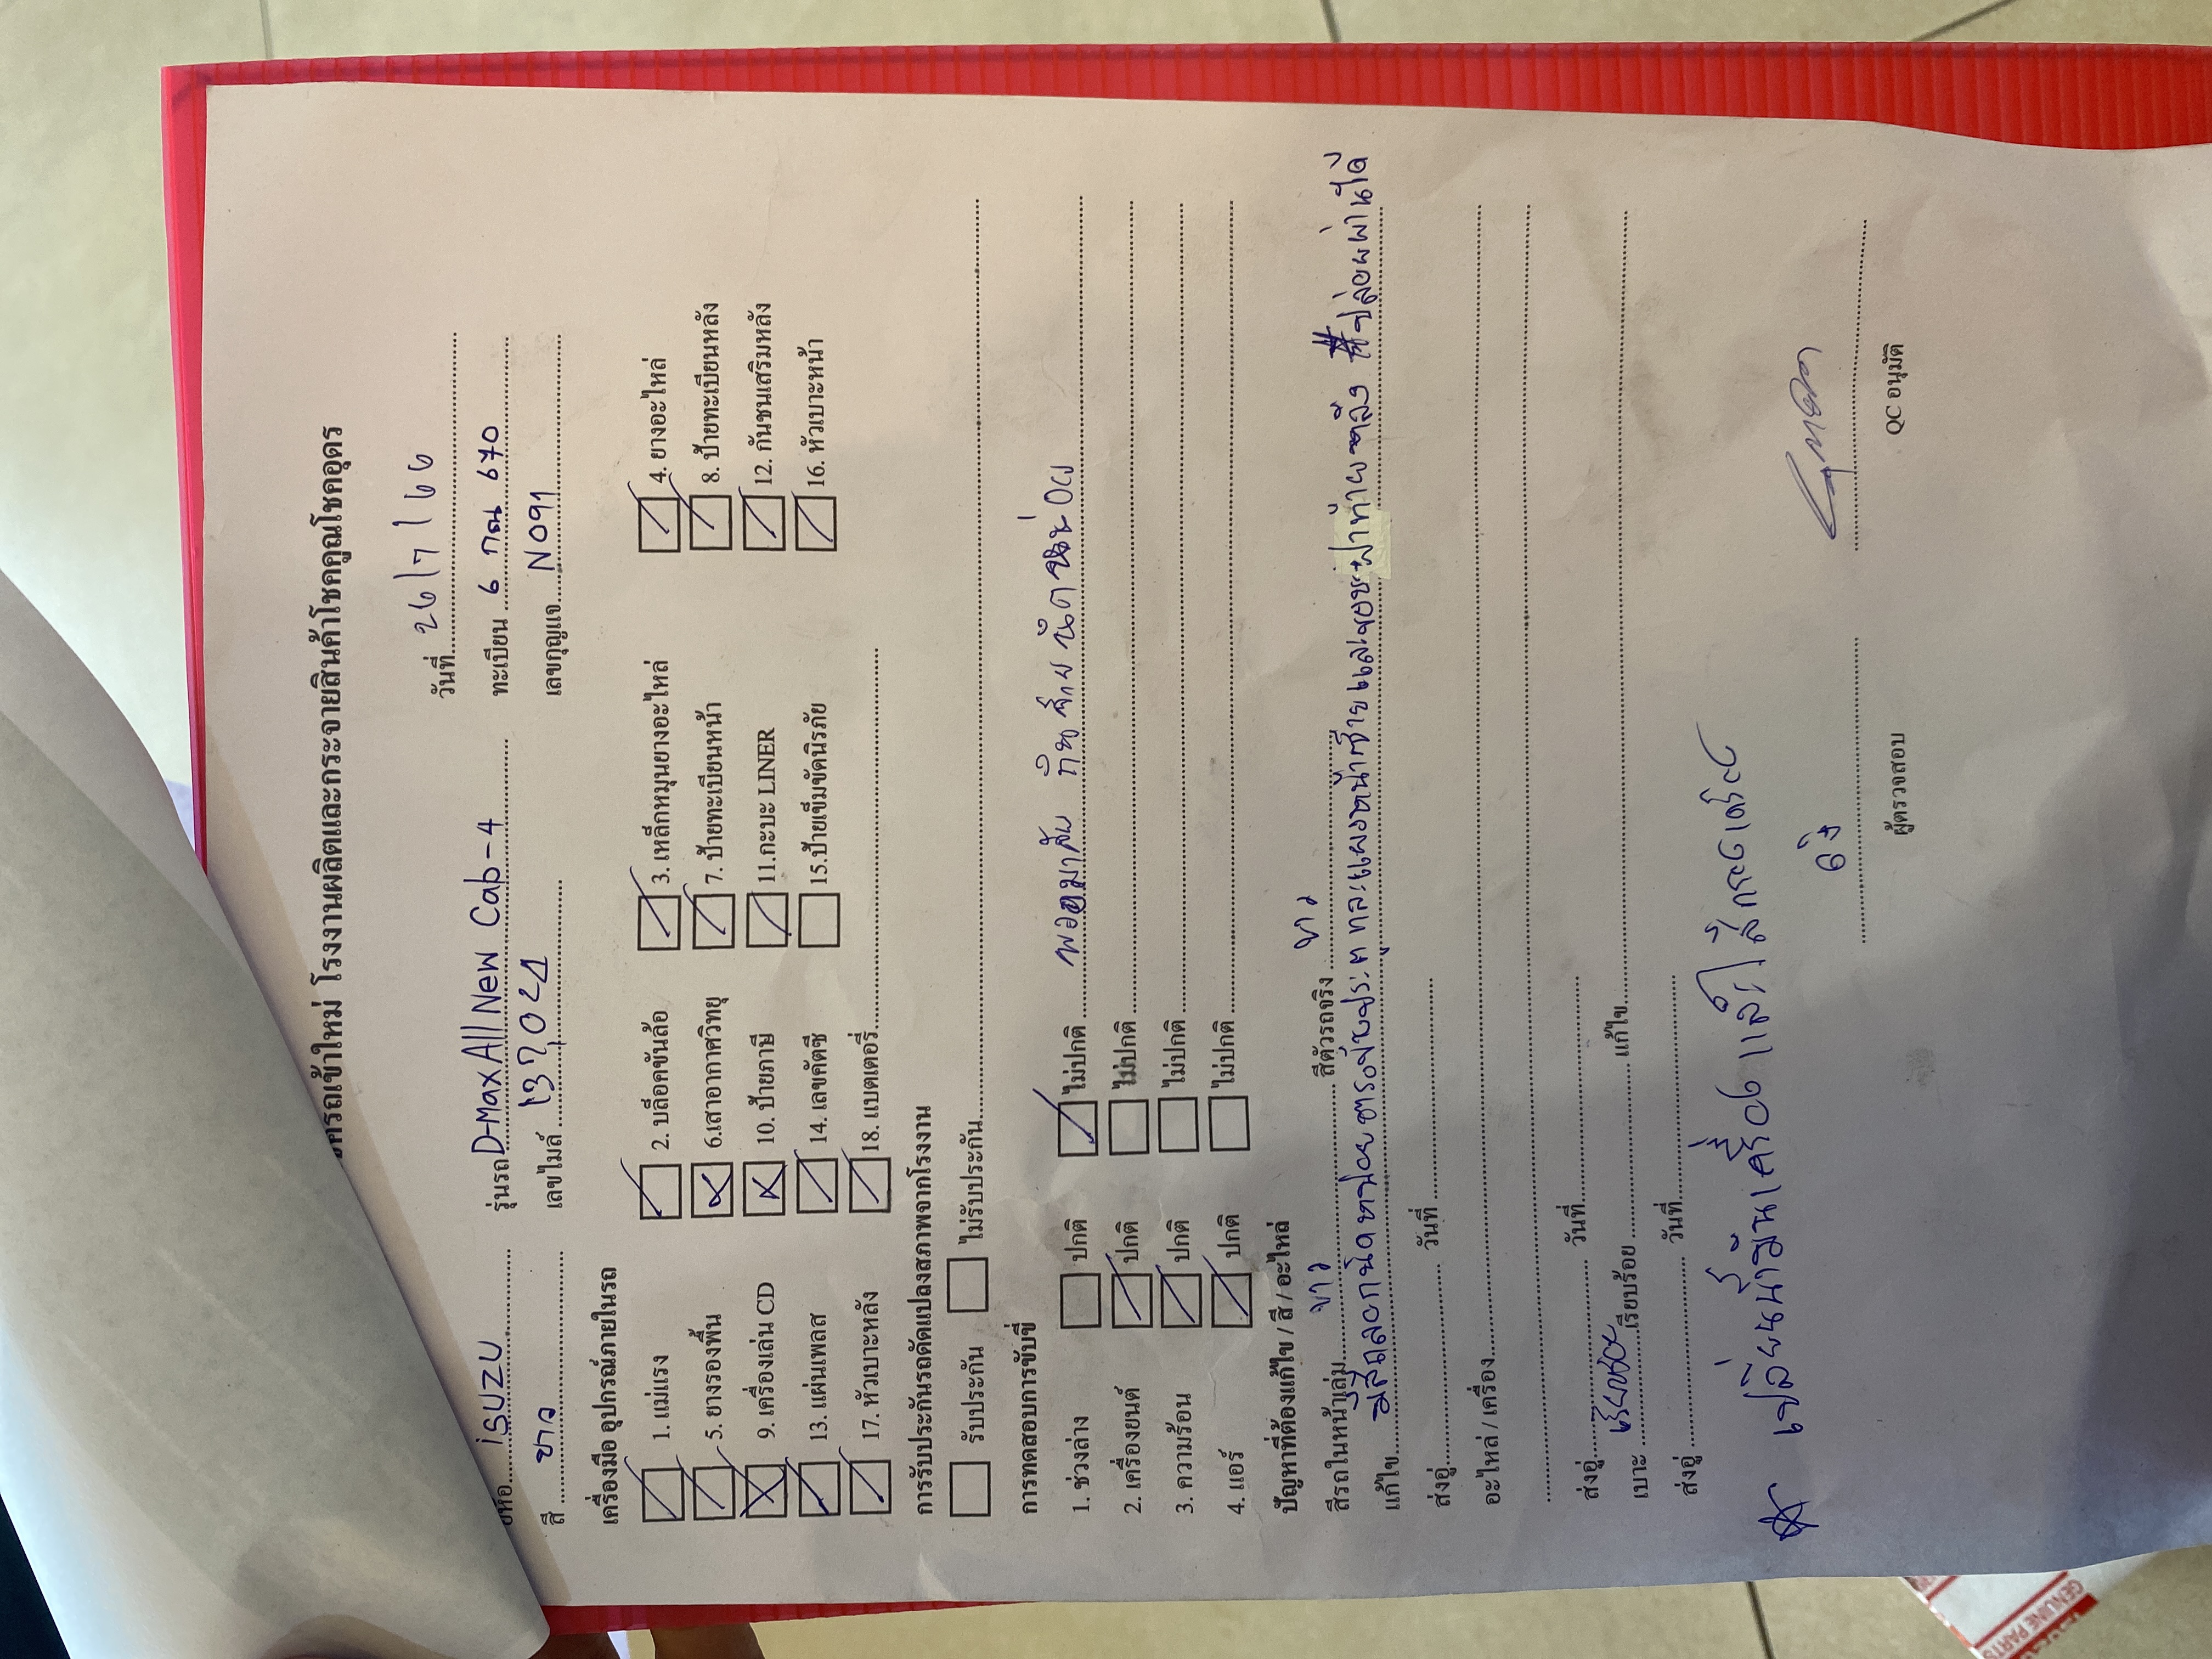 ครถเข้าใหม่ โรงงานผลิตและกระจายสินค้าโชคคูณโชคอุดร
วันที่ 26/7/66
ยี่ห้อ isuzu รุ่นรถ D-Max All New Cab-4 ทะเบียน 6 กณ 670
สี ขาว เลขไมล์ เลขกุญแจ N091
เครื่องมือ อุปกรณ์ภายในรถ
1. แม่แรง 2. บล็อคขันล้อ 3. เหล็กหมุนยางอะไหล่ 4. ยางอะไหล่
5. ยางรองพื้น 6.เสาอากาศวิทยุ 7. ป้ายทะเบียนหน้า 8. ป้ายทะเบียนหลัง
9. เครื่องเล่น CD 10. ป้ายภาษี 11.กะบะ LINER 12. กันชนเสริมหลัง
13. แผ่นเพลส 14. เลขคัตซี 15.ป้ายเข็มขัดนิรภัย 16. หัวเบาะหน้า
17. หัวเบาะหลัง 18. แบตเตอรี่
การรับประกันรถดัดแปลงสภาพจากโรงงาน
รับประกัน ไม่รับประกัน
การทดสอบการขับขี่
1. ช่วงล่าง ปกติ ไม่ปกติ พวงมาลัย กินซ้าย นิดหน่อย
2. เครื่องยนต์ ปกติ ไม่ปกติ
3. ความร้อน ปกติ ไม่ปกติ
4. แอร์ ปกติ ไม่ปกติ
ปัญหาที่ต้องแก้ไข / สี / อะไหล่
สีรถในหน้าเล่ม ขาว สีตัวรถจริง ขาว
แก้ไข มีสีถลอกนิดหน่อย #ปล่อยผ่านได้
ส่งอู่ วันที่
อะไหล่ / เครื่อง
ส่งอู่ วันที่
เบาะ เรียบร้อย แก้ไข
ส่งอู่ วันที่
เปลี่ยนน้ำมันเครื่อง แล้ว
ผู้ตรวจสอบ QC อนุมัติ
GENUINE PARTS